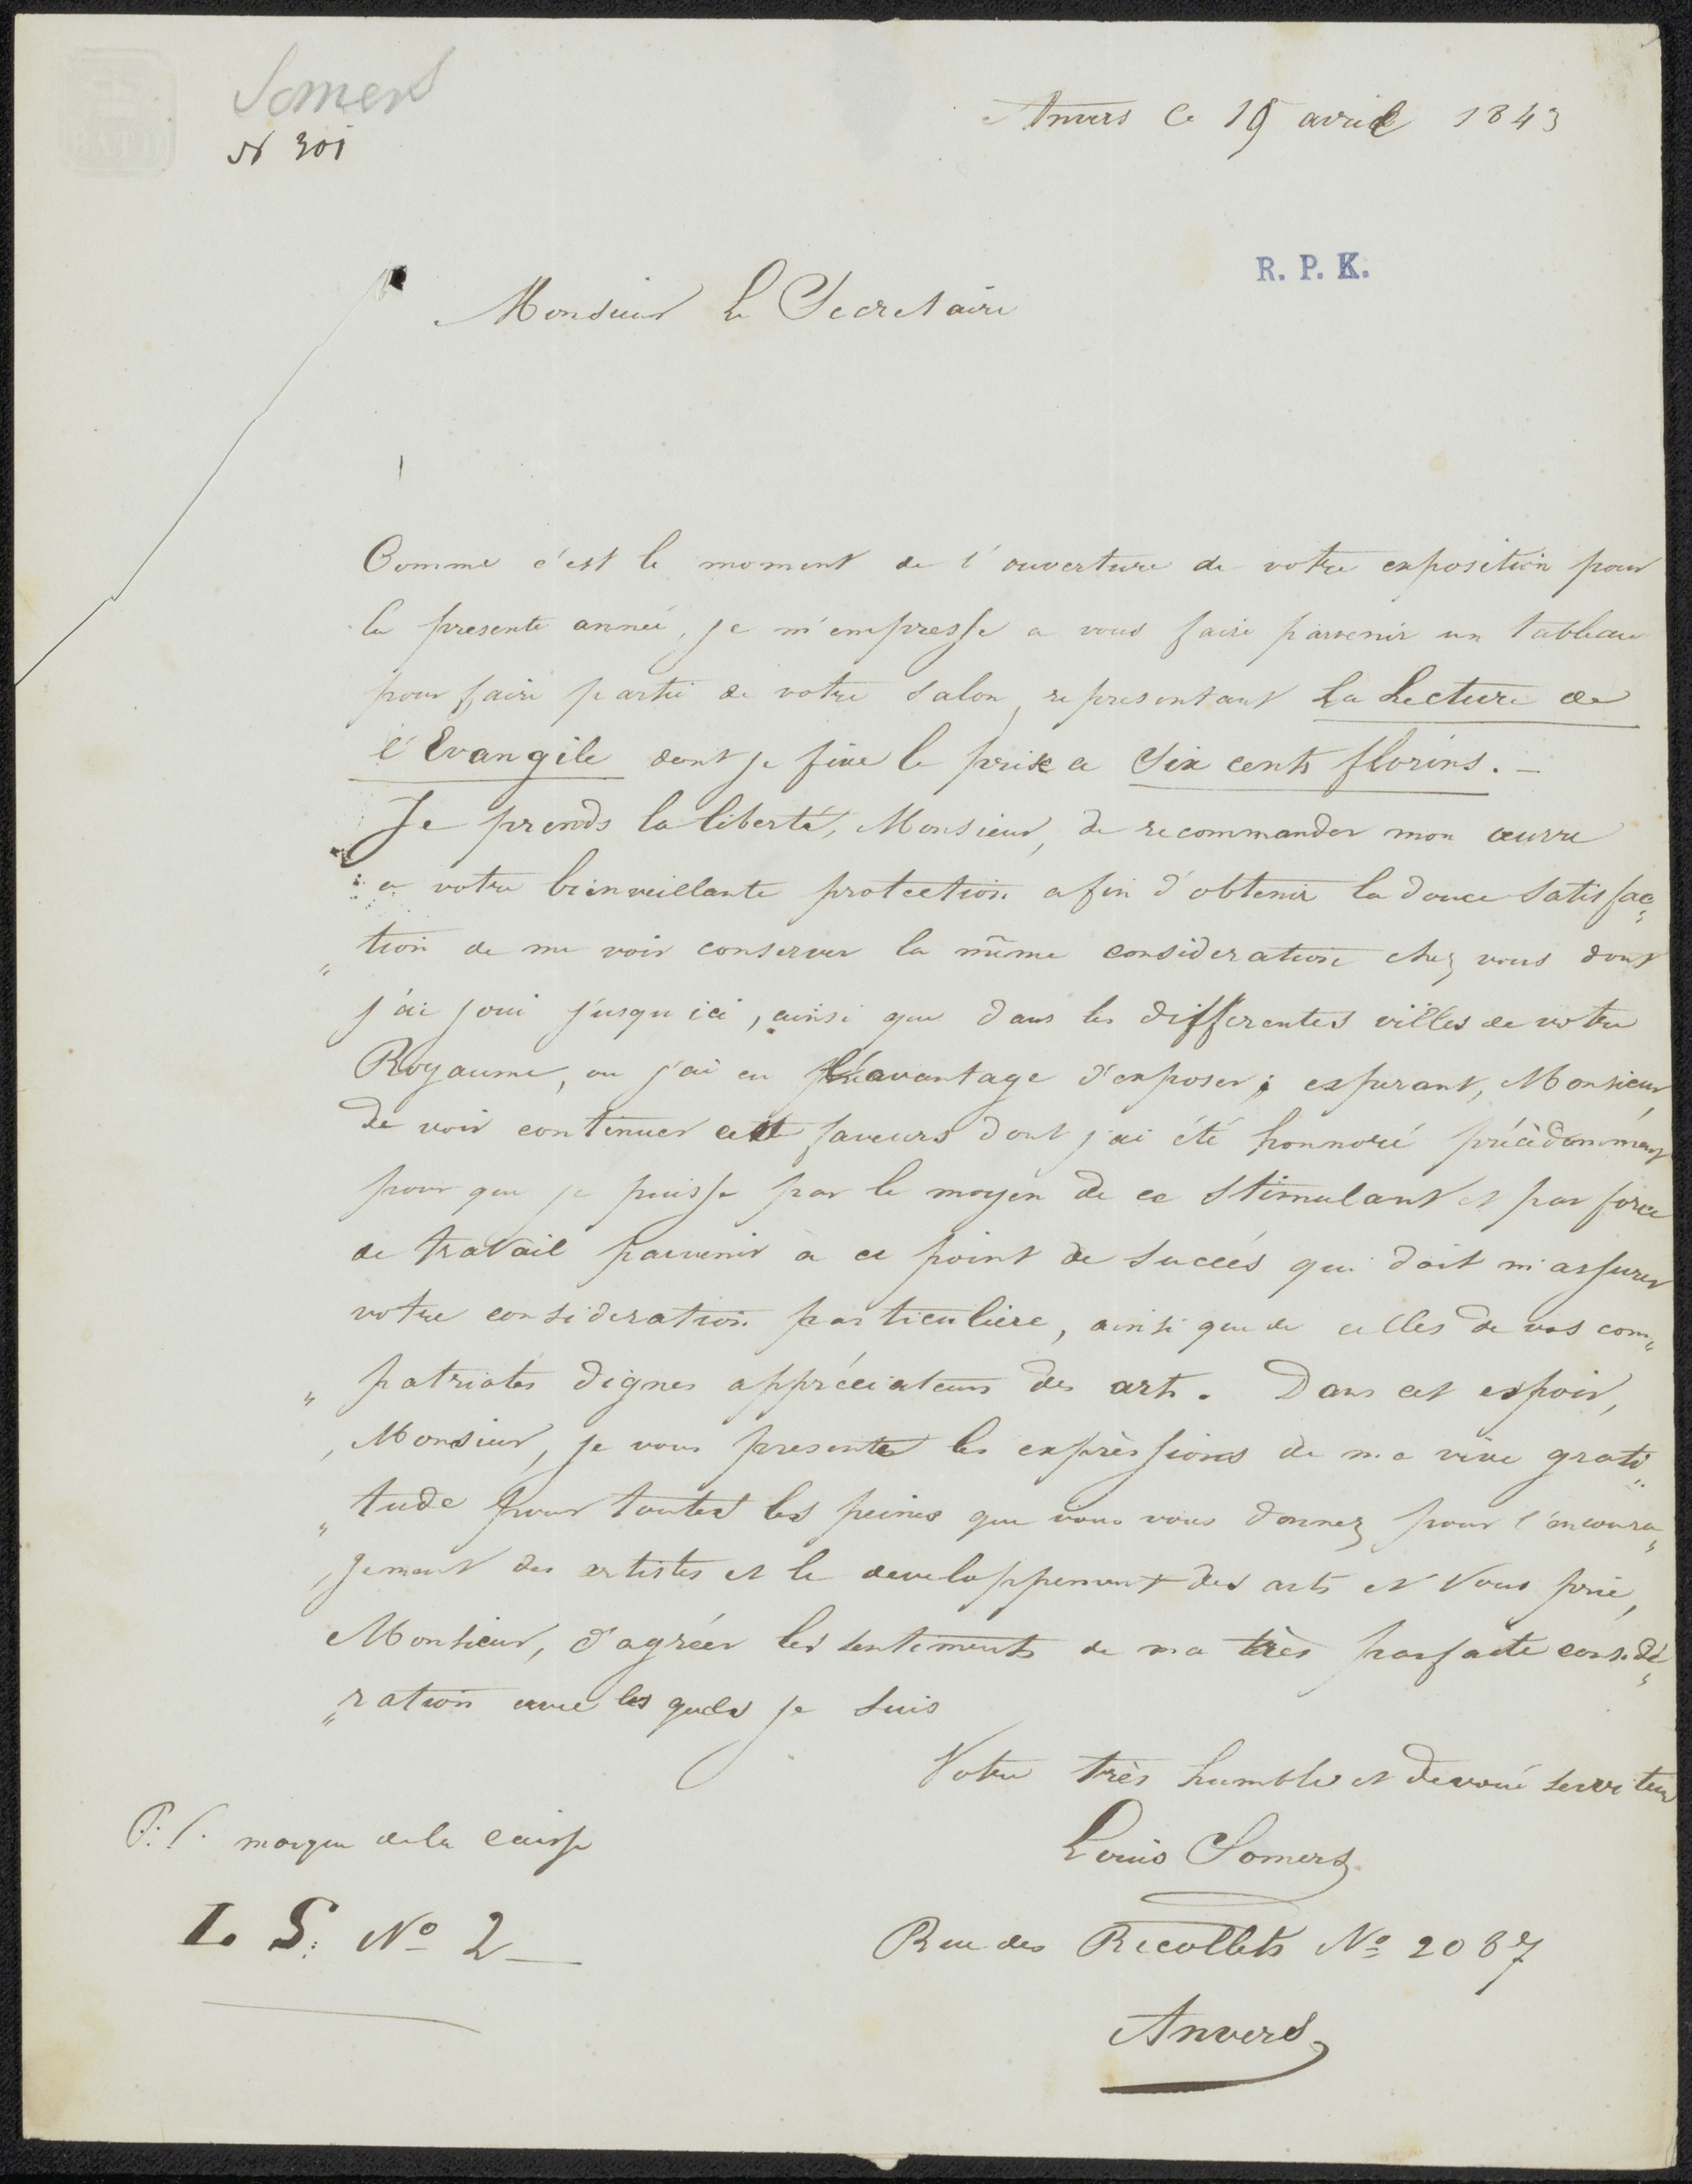 Somers
N 301
Anvers Ce 19 avril 1843
R. P. K.
Monsieur Le Secretaire
Comme c'est le moment de l'ouverture de votre exposition pour
la presente année, je m'empresse a vous faire parvenir un tableau
pour faire partie de votre salon, representant La Lecture de
l'Evangile dont je fixe le prix a Six cents florins. —
Je prends la liberté, Monsieur, de recommander mon œuvre
a votre bienveillante protection afin d'obtenir la douce satisfac„
„tion de me voir conserver la même consideration chez vous dont
j'ai joui jusqu'ici, ainsi que dans les differentes villes de votre
Royaume, ou j'ai eu l'avantage d'exposer; esperant, Monsieur,
de voir continuer cette faveurs dont j'ai été honnoré précèdemment
pour que je puisse par le moyen de ce stimulant et par force
de travail parvenir à ce point de succés qui doit m'assurer
votre consideration particuliere, ainsi que de celles de vos com„
„patriotes dignes appréciateurs des arts. Dans cet espoir,
Monsieur, je vous presente les exprèssions de ma vive grati„
„tude pour toutes les peines que vous vous donnez pour l'encoura„
„jement des artistes et le developpement des arts et Vous prie,
Monsieur, d'agréer les sentiments de ma très parfaite considé„
„ration avec les quels je suis
Votre très humble et devoué serviteur
Louis Somers
P. S. marque de la caisse
L. S. No 2
Rue des Recollets No 2087
Anvers